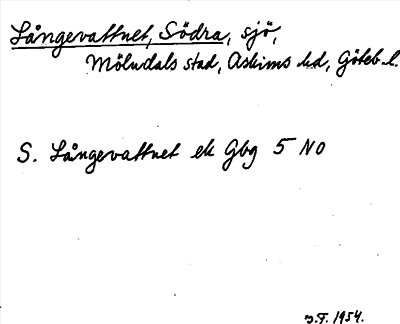 Långevattnet, Södra, sjö,
Mölndals stad, Askims hd, Göteb. l.
S. Långevattnet ek Gbg 5 NO
J.F. 1954.